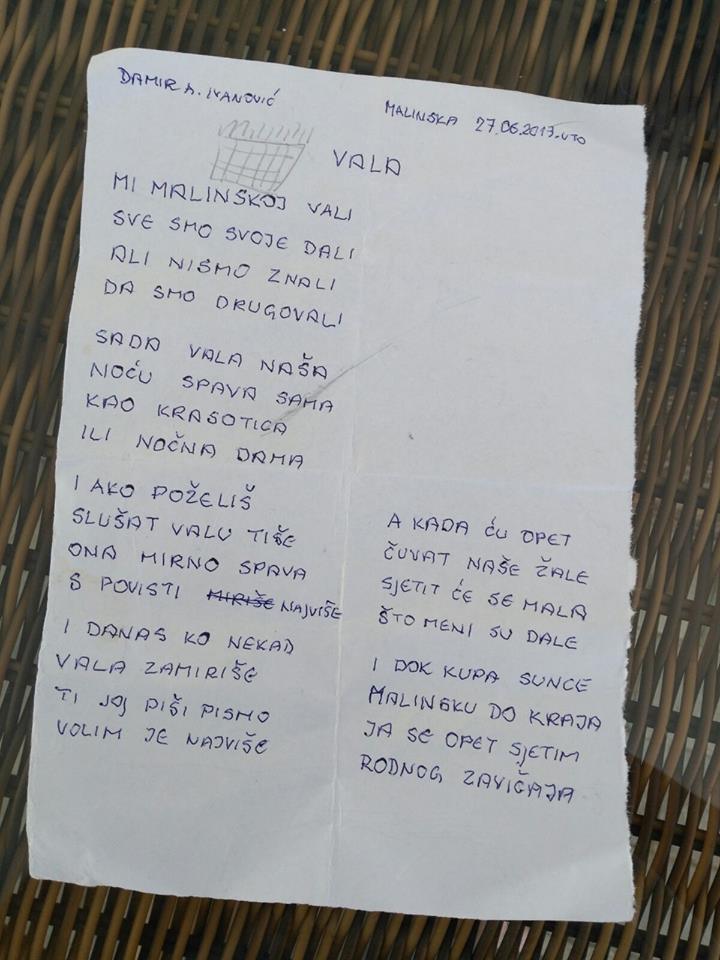 DAMIR A. IVANOVIĆ
MALINSKA 27.06.2017. UTO
VALA
MI MALINSKOJ VALI
SVE SMO SVOJE DALI
ALI NISMO ZNALI
DA SMO DRUGOVALI
SADA VALA NAŠA
NOĆU SPAVA SAMA
KAO KRASOTICA
ILI NOĆNA DAMA
I AKO POŽELIŠ
SLUŠAT VALU TIŠE
ONA MIRNO SPAVA
S POVISTI MIRIŠE NAJVIŠE
I DANAS KO NEKAD
VALA ZAMIRIŠE
TI JOJ PIŠI PISMO
VOLIM JE NAJVIŠE
A KADA ĆU OPET
ČUVAT NAŠE ŽALE
SJETIT ĆE SE MALA
ŠTO MENI SU DALE
I DOK KUPA SUNCE
MALINSKU DO KRAJA
JA SE OPET SJETIM
RODNOG ZAVIČAJA